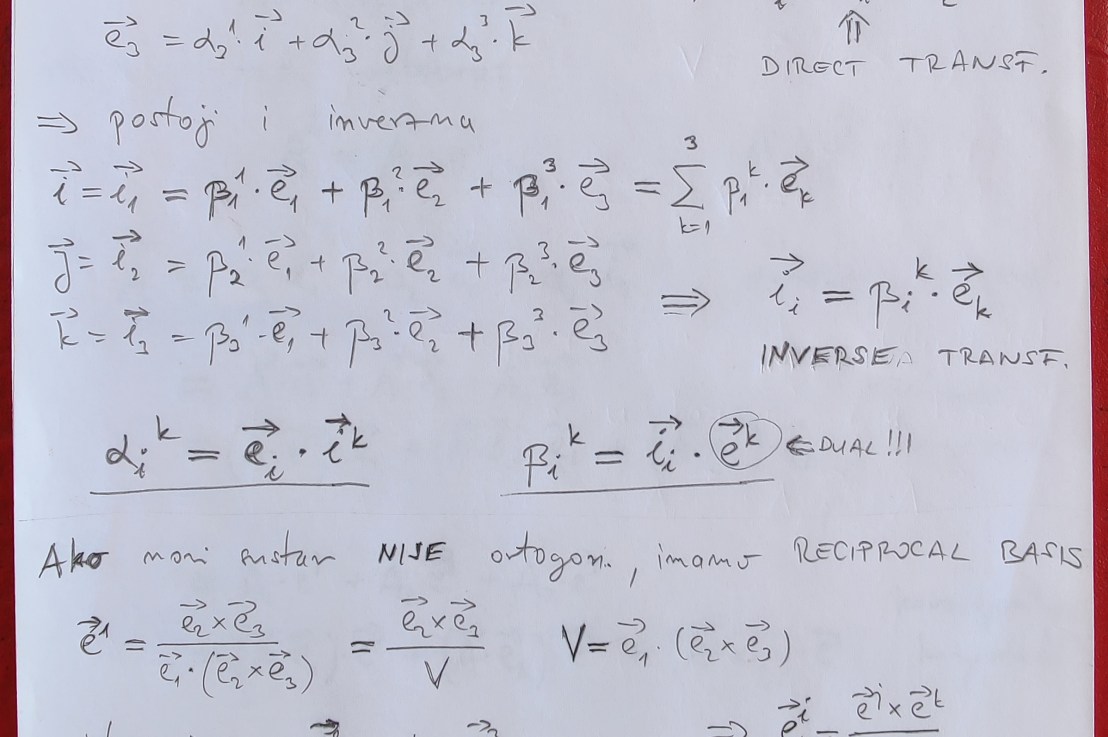 e⃗₃ = α₃¹·i⃗ + α₃²·j⃗ + α₃³·k⃗
⇑
DIRECT TRANSF.
⇒ postoji i inverzna
i⃗ = i⃗₁ = β₁¹·e⃗₁ + β₁²·e⃗₂ + β₁³·e⃗₃ = ∑ₖ₌₁³ β₁ᵏ·e⃗ₖ
j⃗ = i⃗₂ = β₂¹·e⃗₁ + β₂²·e⃗₂ + β₂³·e⃗₃
⇒ i⃗ᵢ = βᵢᵏ·e⃗ₖ
k⃗ = i⃗₃ = β₃¹·e⃗₁ + β₃²·e⃗₂ + β₃³·e⃗₃
INVERSE TRANSF.
αᵢᵏ = e⃗ᵢ · i⃗ᵏ βᵢᵏ = i⃗ᵢ · e⃗ᵏ ← DUAL!!!
Ako novi sustav NIJE ortogon., imamo RECIPROCAL BASIS
e⃗¹ = (e⃗₂×e⃗₃)/(e⃗₁·(e⃗₂×e⃗₃)) = (e⃗₂×e⃗₃)/V V = e⃗₁·(e⃗₂×e⃗₃)